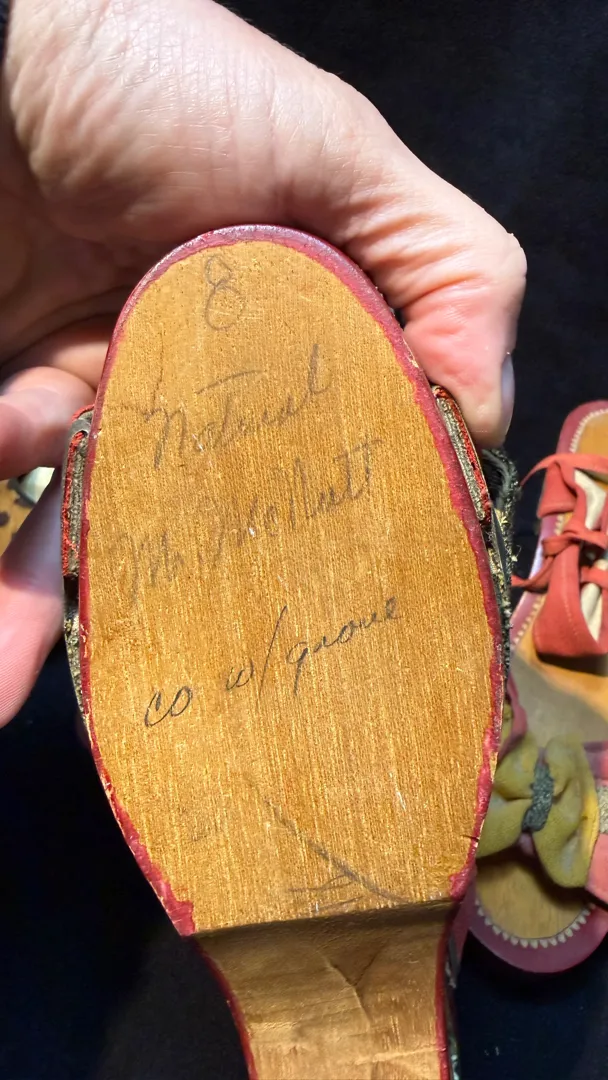 8
Natural
Mr. McNutt
co w/ grove